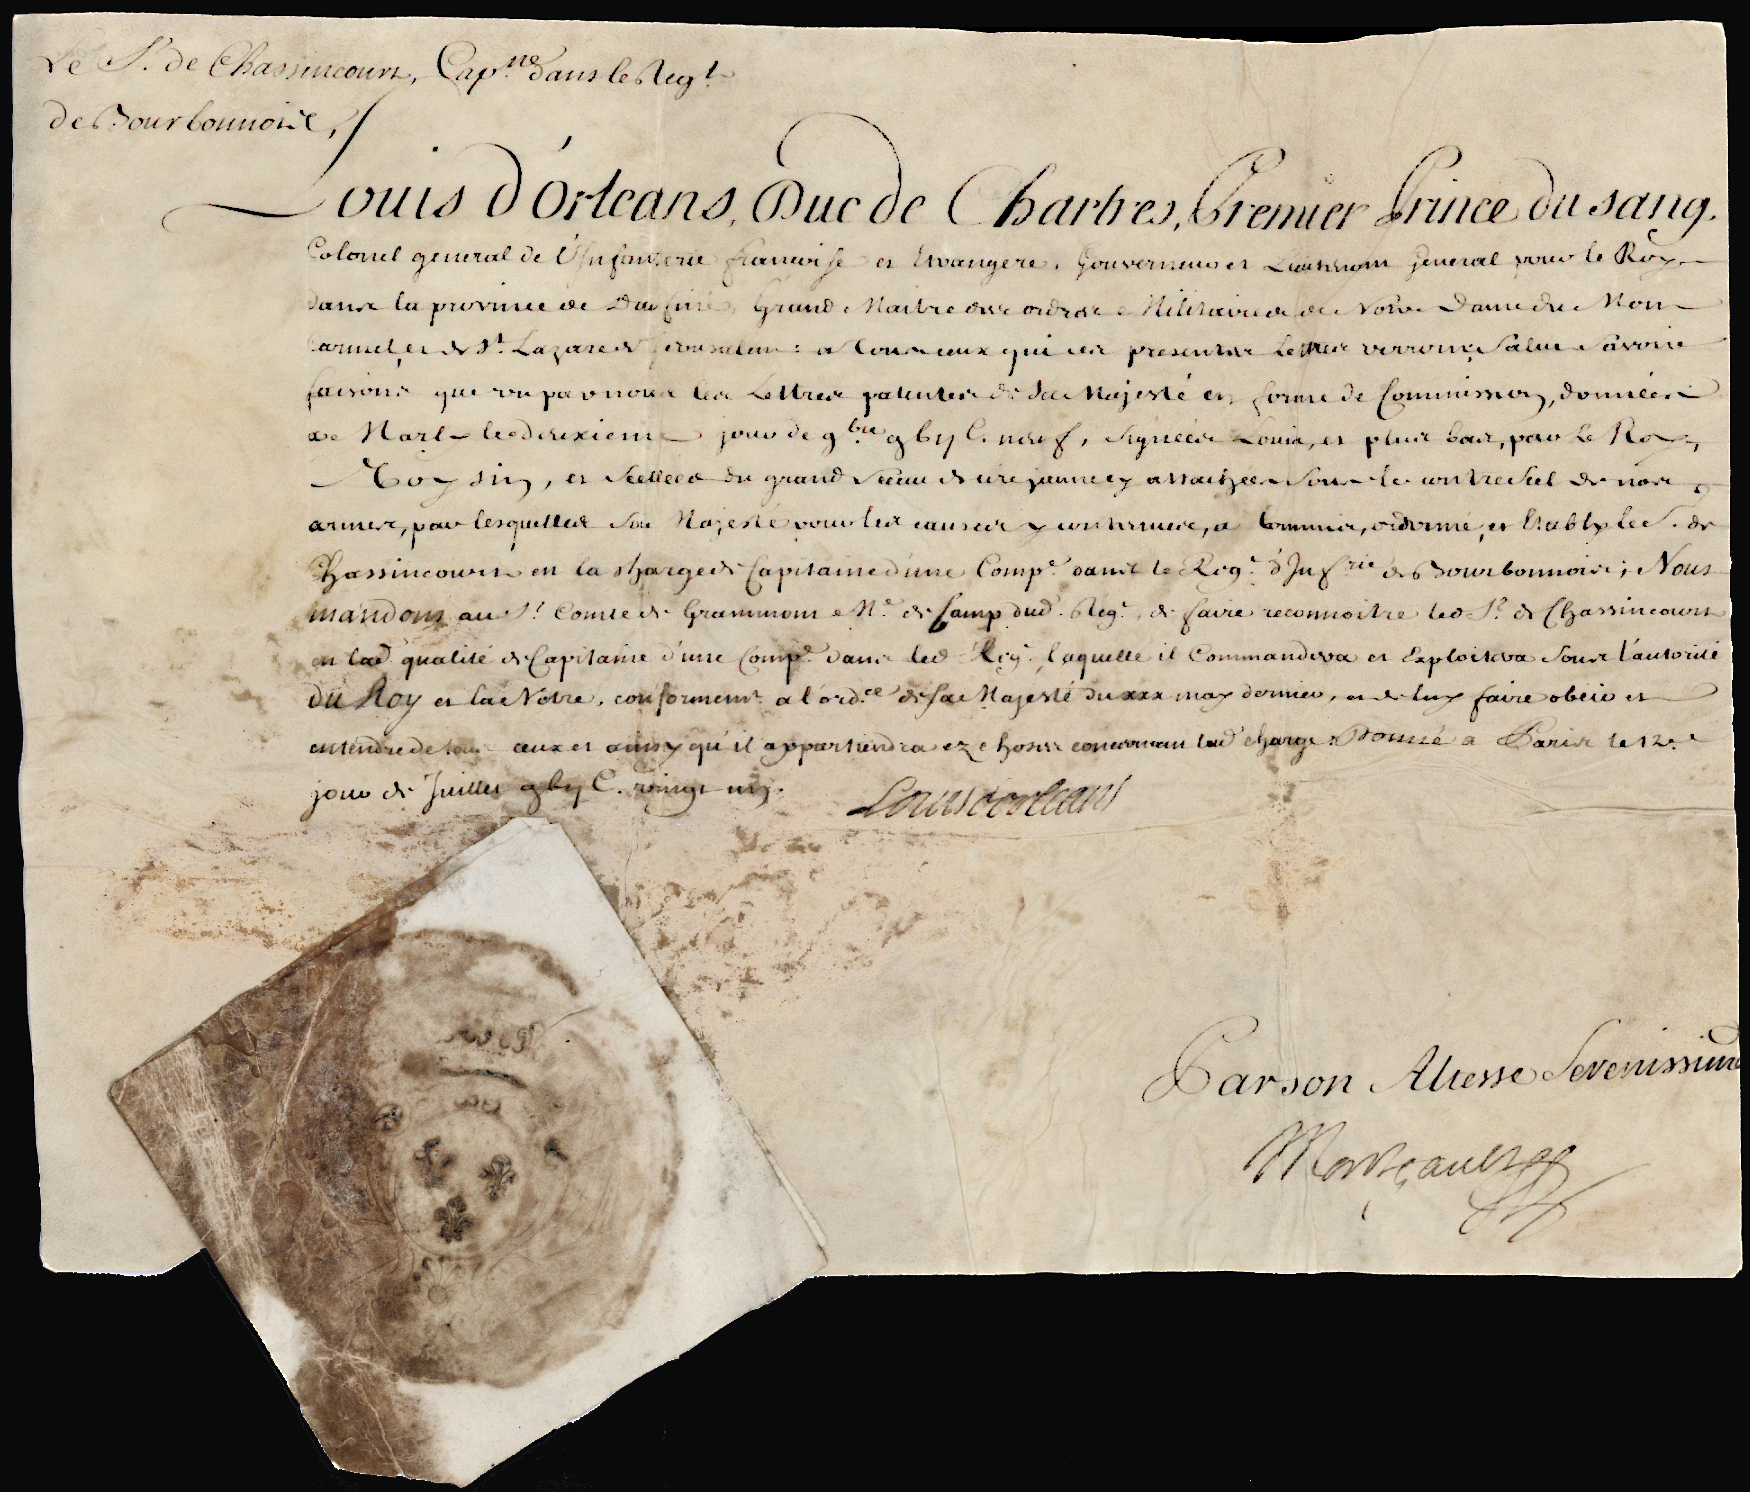 Le Sr. de Chassincourt, Capne. dans le Regt.
de Bourbonnois,
Louis d'Orleans, Duc de Chartres, Premier Prince du sang.
Colonel general de l'Infanterie francoise et Etrangere, Gouverneur et Lieutenant General pour le Roy
dans la province de Daufiné, Grand Maitre des ordres Militaires de Notre Dame du Mon
Carmel, et de St. Lazare de Jerusalem: a tous ceux qui ces presentes Lettres verront, Salut Savoir
faisons que vu par nous les Lettres patentes de Sa Majesté en forme de Commission, données
a Marl le deuxieme jour de 9bre gbij C. neuf, Signées Louis, et plus bas, par Le Roy,
Voysin, et Scellées du grand Sceau de cire jaune cy attachées Sous le contrescel de nos
armes, par lesquelles Sa Majesté pour les causes y contenues, a Commis, ordonné, et Etably le S. de
Chassincourt en la charge de Capitaine d'une Compe. dans le Regt. d'Infrie de Bourbonnois; Nous
mandons au Sr. Comte de Grammont Me. de Camp dud. Regt. de faire reconnoitre led Sr. de Chassincourt
en lad. qualité de Capitaine d'une Compe. dans led Regt. laquelle il Commandera et Exploitera Sous l'autorité
du Roy et la Notre, conformemt. a l'ordce de Sa Majesté du xxx may dernier, et de luy faire obeir et
entendre de tous ceux et ainsy qu'il appartiendra ez choses concernant lad charge. Donné a Paris le 12e.
jour de Juillet gbij C. vingt un.
Louis d'orleans
Par son Altesse Serenissime